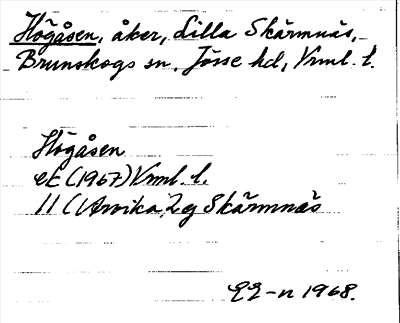 Högåsen, åker, Lilla Skärmnäs,
Brunskogs sn, Jösse hd, Vrml. l.
Högåsen
eE (1967) Vrml. l.
11 (Arvika) 2g Skärmnäs
1968.